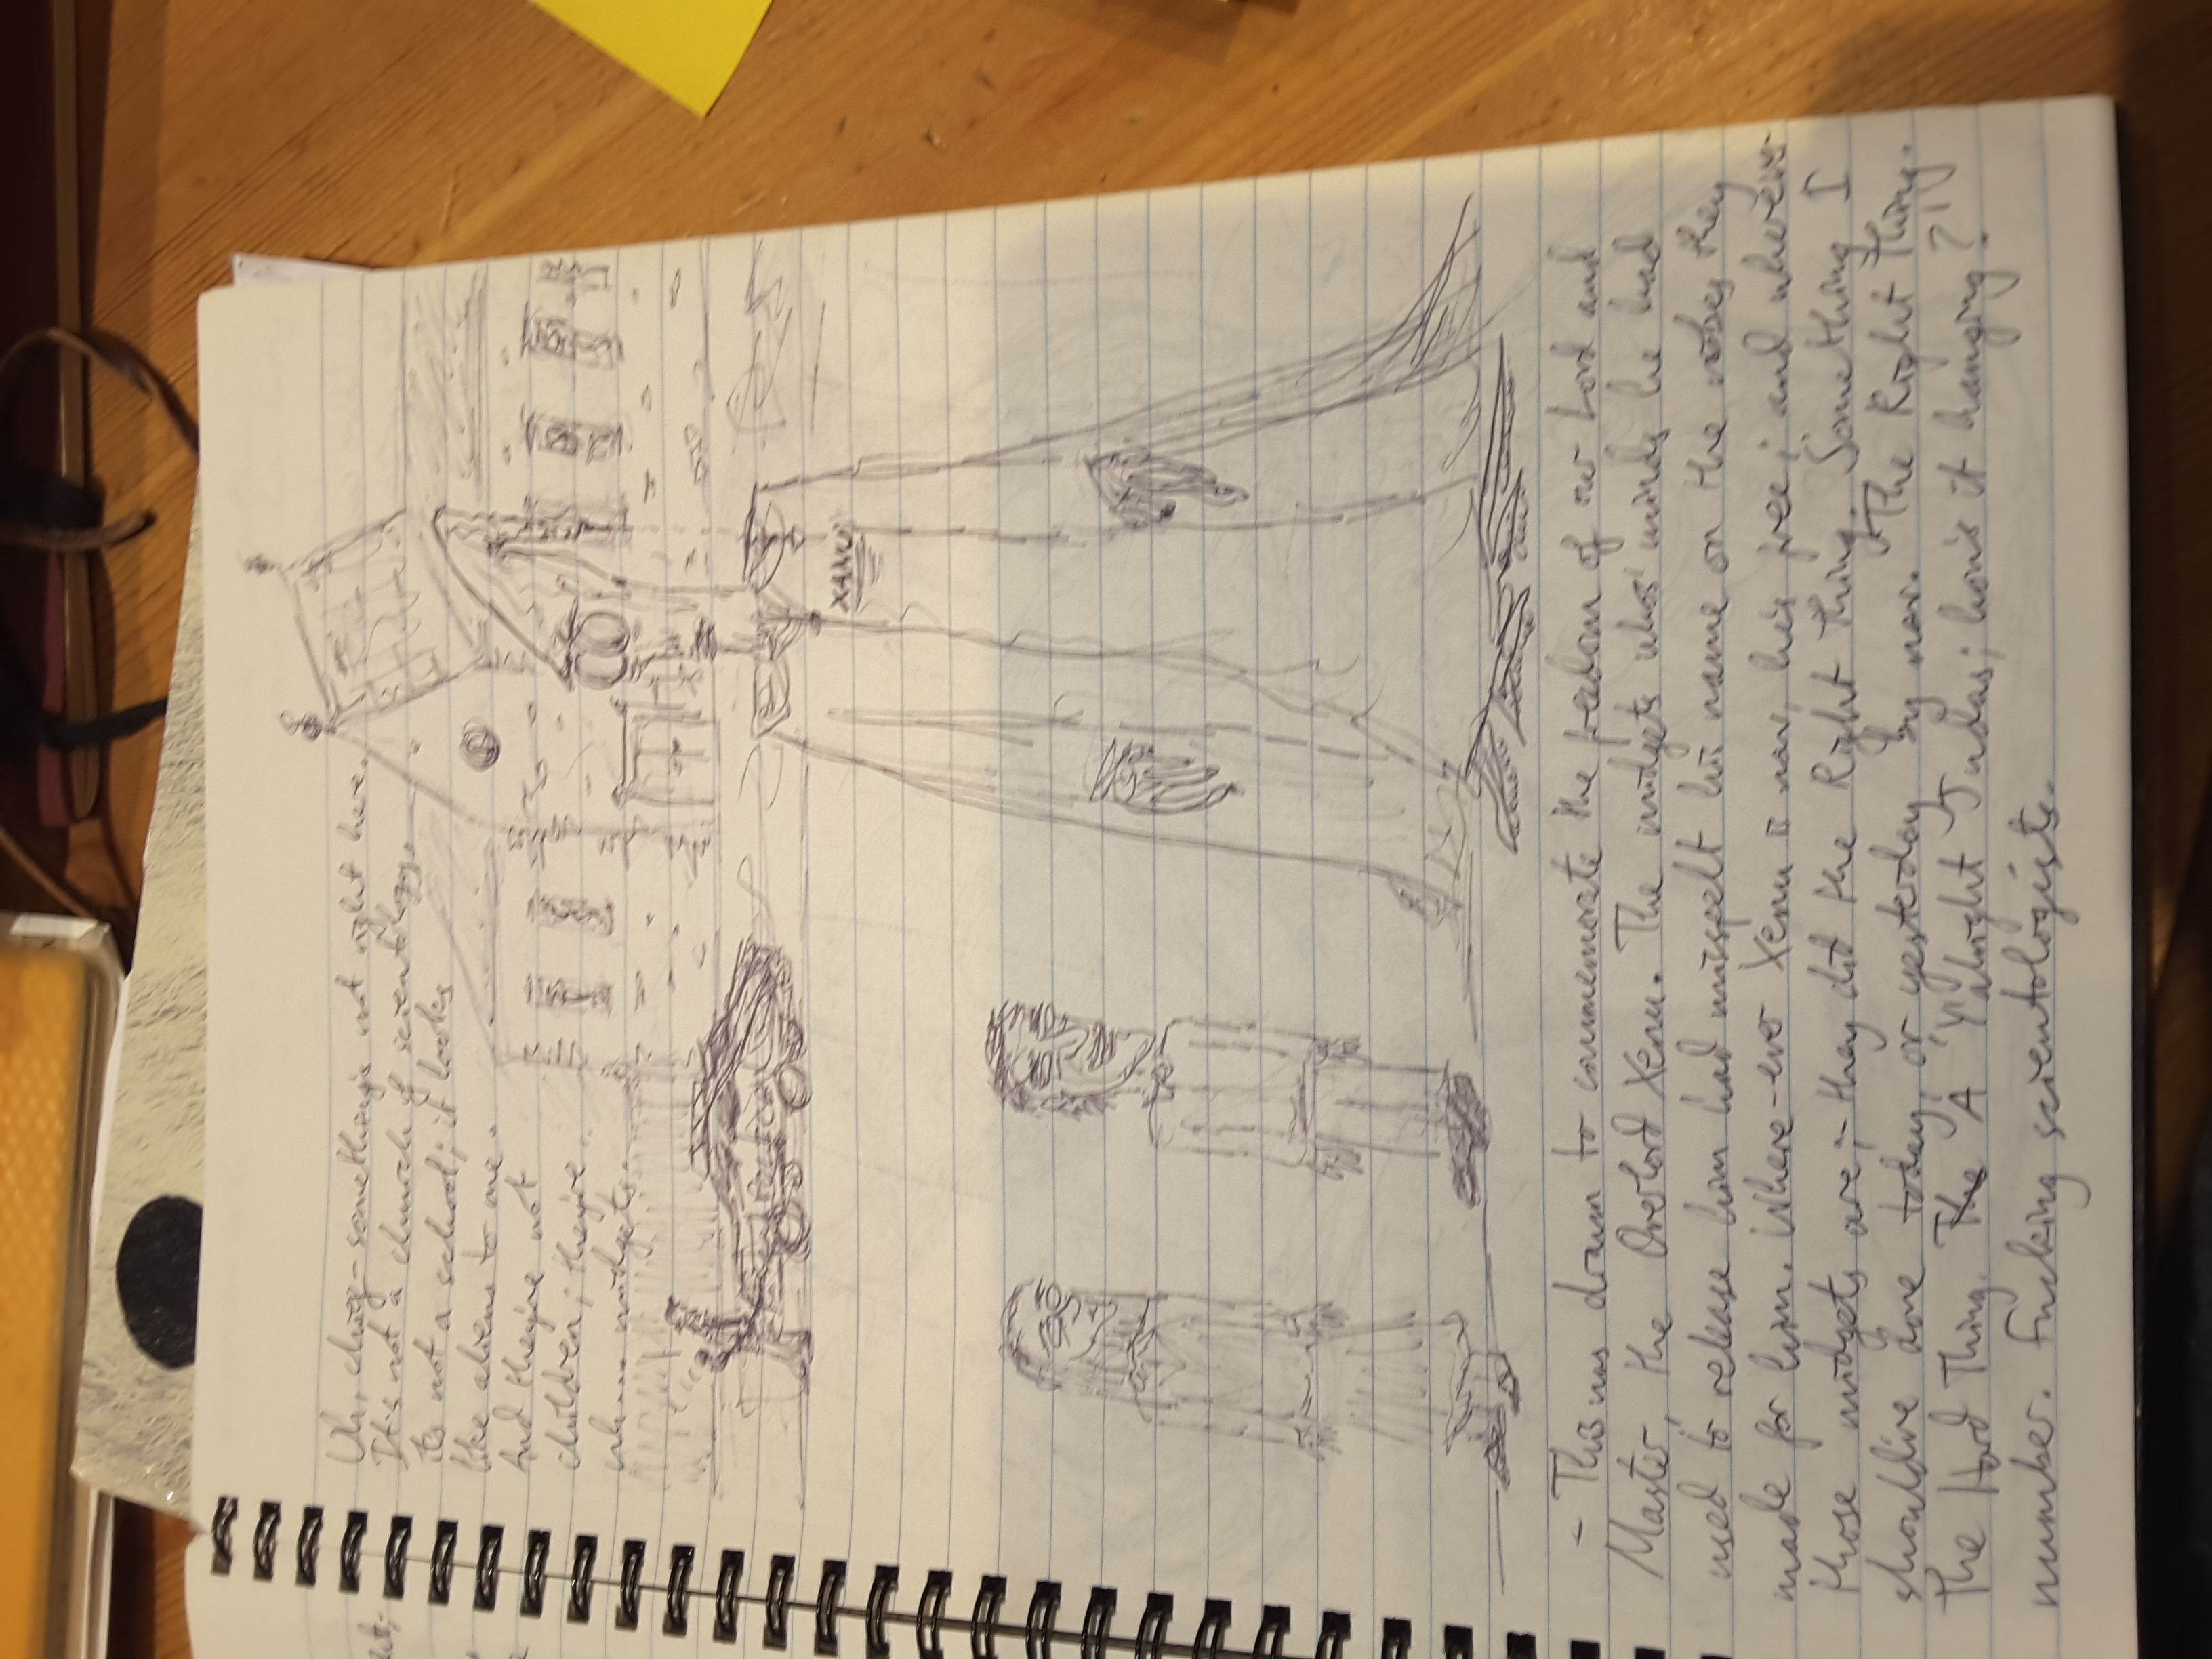 Uh, chief – something's not right here.
It's not a church of scientology,
its not a school; it looks
like aliens to me.
And they're not
children; they're..
uh.... midgets.
XANU
– This was drawn to commemorate the freedom of our Lord and
Master, the Overlord Xenu. The midgets whos' minds he had
used to release him had misspelt his name on the robes they
made for him. Where-ever Xenu is now, he's free; and wherever
those midgets are;- they did the Right Thing. Something I
should've done today, or yesterday by now. The Right Thing.
The Hard Thing. The A 'Y'alright Judas; how's it hanging?'
number. Fucking scientologists.